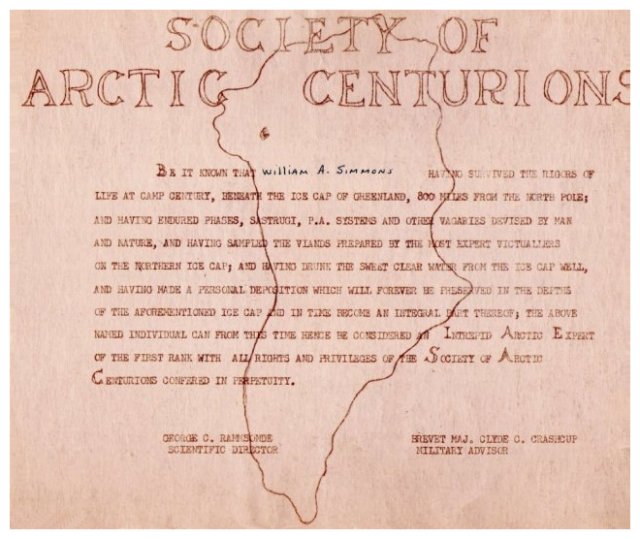 SOCIETY OF
ARCTIC CENTURIONS
BE IT KNOWN THAT William A. Simmons HAVING SURVIVED THE RIGORS OF
LIFE AT CAMP CENTURY, BENEATH THE ICE CAP OF GREENLAND, 800 MILES FROM THE NORTH POLE;
AND HAVING ENDURED PHASES, SASTRUGI, P.A. SYSTEMS AND OTHER VAGARIES DEVISED BY MAN
AND NATURE, AND HAVING SAMPLED THE VIANDS PREPARED BY THE MOST EXPERT VICTUALLERS
ON THE NORTHERN ICE CAP; AND HAVING DRUNK THE SWEET CLEAR WATER FROM THE ICE CAP WELL,
AND HAVING MADE A PERSONAL DEPOSITION WHICH WILL FOREVER BE PRESERVED IN THE DEPTHS
OF THE AFOREMENTIONED ICE CAP AND IN TIME BECOME AN INTEGRAL PART THEREOF; THE ABOVE
NAMED INDIVIDUAL CAN FROM THIS TIME HENCE BE CONSIDERED AN INTREPID ARCTIC EXPERT
OF THE FIRST RANK WITH ALL RIGHTS AND PRIVILEGES OF THE SOCIETY OF ARCTIC
CENTURIONS CONFERED IN PERPETUITY.
GEORGE C. RAMMSONDE
SCIENTIFIC DIRECTOR
BREVET MAJ. CLYDE C. CRASHCUP
MILITARY ADVISOR